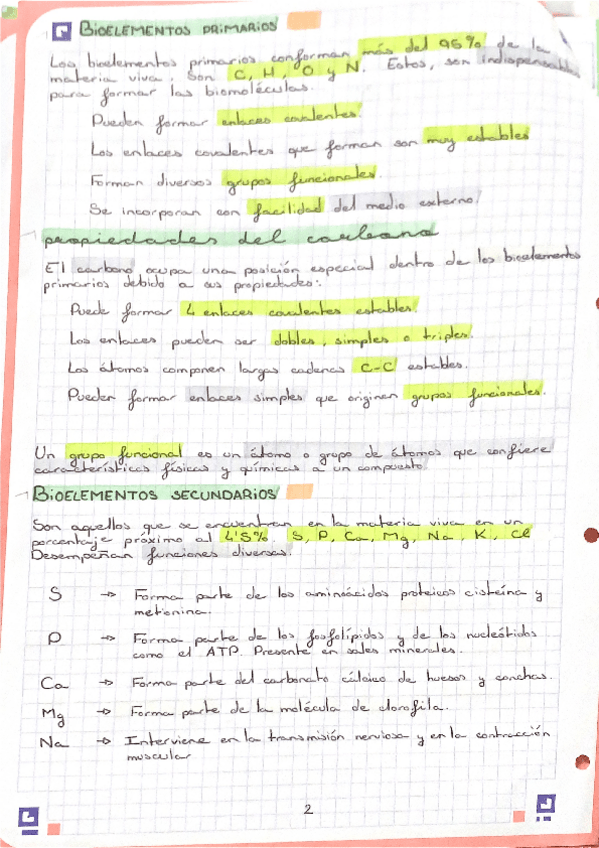 BIOELEMENTOS PRIMARIOS
Los bioelementos primarios conforman más del 95% de la
materia viva. Son C, H, O y N. Estos, son indispensables
para formar las biomoléculas.
Pueden formar enlaces covalentes.
Los enlaces covalentes que forman son muy estables
Forman diversos grupos funcionales.
Se incorporan con facilidad del medio externo.
propiedades del carbono
El carbono ocupa una posición especial dentro de los bioelementos
primarios debido a sus propiedades:
Puede formar 4 enlaces covalentes estables.
Los enlaces pueden ser dobles, simples o triples.
Los átomos componen largas cadenas C-C estables.
Pueden formar enlaces simples que originen grupos funcionales.
Un grupo funcional es un átomo o grupo de átomos que confiere
características físicas y químicas a un compuesto.
BIOELEMENTOS SECUNDARIOS
Son aquellos que se encuentran en la materia viva en un
porcentaje próximo al 4'5%. S, P, Ca, Mg, Na, K, Cl
Desempeñan funciones diversas.
S → Forma parte de los aminoácidos proteicos cisteína y
metionina.
P → Forma parte de los fosfolípidos y de los nucleótidos
como el ATP. Presente en sales minerales.
Ca → Forma parte del carbonato cálcico de huesos y conchas.
Mg → Forma parte de la molécula de clorofila.
Na → Interviene en la transmisión nerviosa y en la contracción
muscular
2